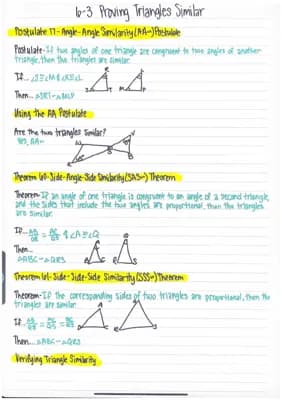 6-3 Proving Triangles Similar
Postulate 17 - Angle-Angle Similarity (AA~) Postulate
Postulate- If two angles of one triangle are congruent to two angles of another
triangle, then the triangles are similar.
If...
Then... △SRT~△MLP
Using the AA Postulate
Are the two triangles similar?
yes, AA~
Theorem 60- Side-Angle-Side Similarity (SAS~) Theorem
Theorem- If an angle of one triangle is congruent to an angle of a second triangle,
and the sides that include the two angles are proportional, then the triangles
are similar.
If... AB/QR = AC/QS & ∠A≅∠Q
Then...
△ABC~△QRS
Theorem 61- Side-Side-Side Similarity (SSS~) Theorem
Theorem- If the corresponding sides of two triangles are proportional, then the
triangles are similar
If...
Then... △ABC~△QRS
Verifying Triangle Similarity